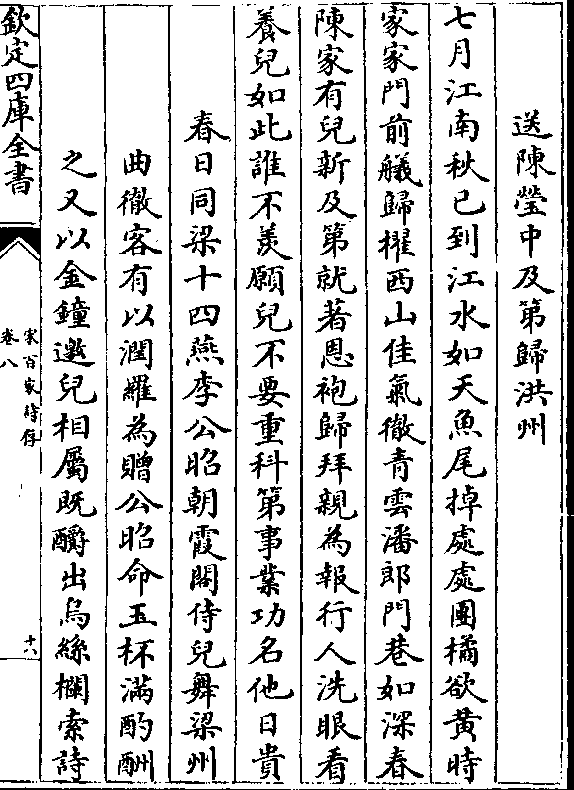 送陳瑩中及第歸洪州
七月江南秋已到江水如天魚尾掉處處團橘欲黄時
家家門前艤歸櫂西山佳氣徹青雲潘郎門巷如深春
陳家有兒新及第就著恩袍歸拜親為報行人洗眼看
養兒如此誰不羨願兒不要重科第事業功名他日貴
春日同梁十四燕李公昭朝霞閣侍兒舞梁州
曲徹客有以潤羅為贈公昭命玉杯滿酌酬
之又以金鐘邀兒相屬既釂出烏絲欄索詩
欽定四庫全書
宋百家詩存
卷八
十六